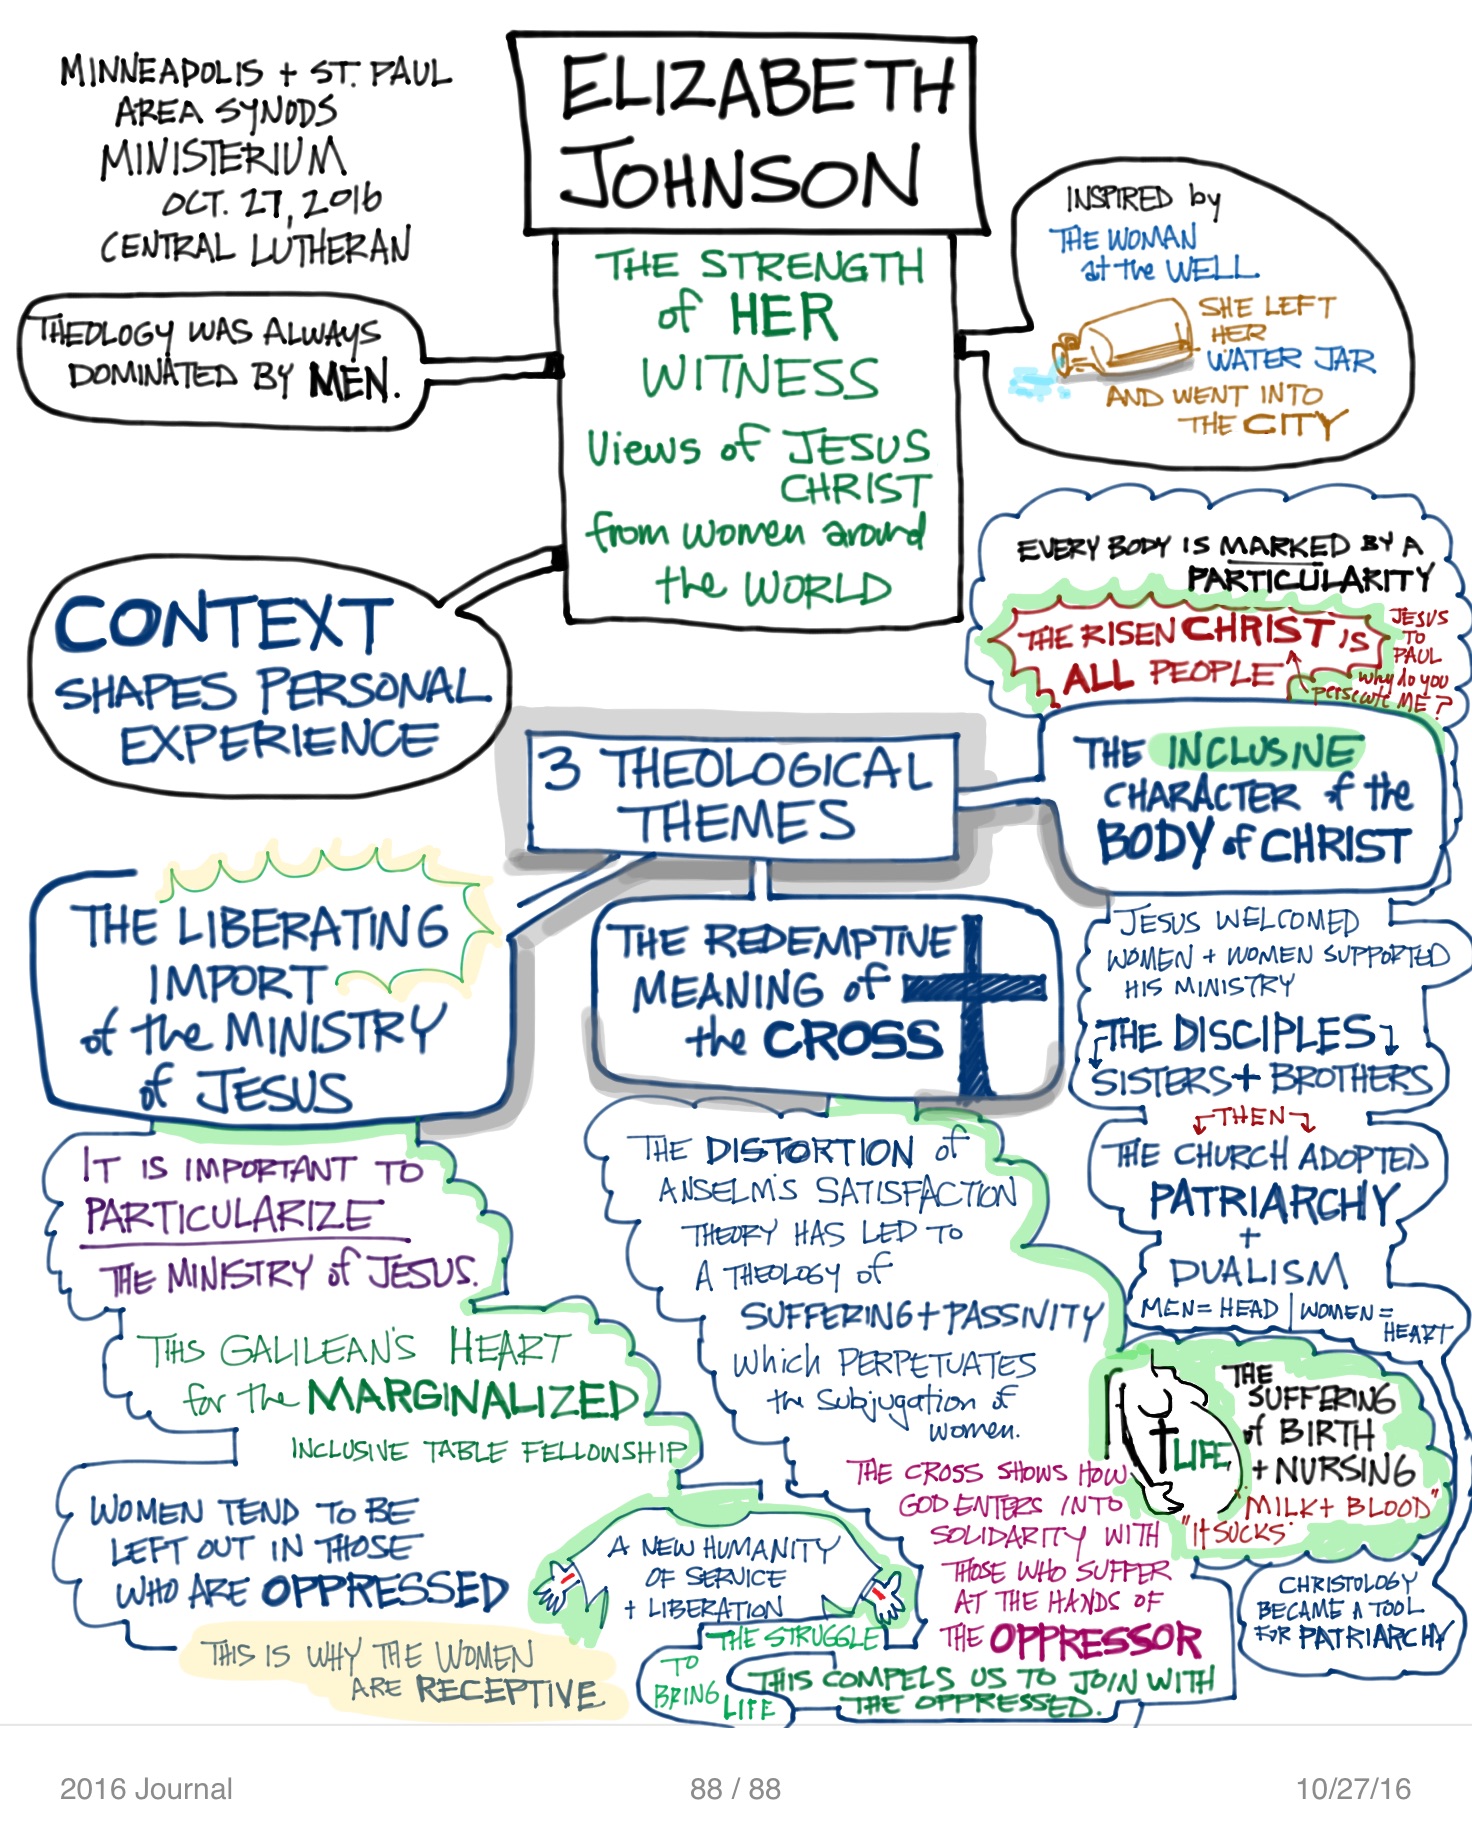 MINNEAPOLIS + ST. PAUL
AREA SYNODS
MINISTERIUM
OCT. 27, 2016
CENTRAL LUTHERAN
ELIZABETH
JOHNSON
THE STRENGTH
of HER
WITNESS
Views of JESUS
CHRIST
from women around
the WORLD
THEOLOGY WAS ALWAYS
DOMINATED BY MEN.
INSPIRED by
THE WOMAN
at the WELL.
SHE LEFT
HER
WATER JAR
AND WENT INTO
THE CITY
CONTEXT
SHAPES PERSONAL
EXPERIENCE
3 THEOLOGICAL
THEMES
EVERY BODY IS MARKED BY A
PARTICULARITY
THE RISEN CHRIST IS
ALL PEOPLE
JESUS
TO
PAUL
why do you
persecute ME?
THE INCLUSIVE
CHARACTER of the
BODY of CHRIST
JESUS WELCOMED
WOMEN + WOMEN SUPPORTED
HIS MINISTRY
THE DISCIPLES
SISTERS + BROTHERS
THEN
THE CHURCH ADOPTED
PATRIARCHY
+
DUALISM
MEN = HEAD | WOMEN =
HEART
THE
SUFFERING
of BIRTH
+ NURSING
"MILK + BLOOD"
"It SUCKS"
LIFE
CHRISTOLOGY
BECAME A TOOL
FOR PATRIARCHY
THE LIBERATING
IMPORT
of the MINISTRY
of JESUS
IT IS IMPORTANT TO
PARTICULARIZE
THE MINISTRY of JESUS.
THIS GALILEAN'S HEART
for the MARGINALIZED
INCLUSIVE TABLE FELLOWSHIP
WOMEN TEND TO BE
LEFT OUT IN THOSE
WHO ARE OPPRESSED
THIS IS WHY THE WOMEN
ARE RECEPTIVE
THE REDEMPTIVE
MEANING of
the CROSS
THE DISTORTION of
ANSELM'S SATISFACTION
THEORY HAS LED TO
A THEOLOGY of
SUFFERING + PASSIVITY
which PERPETUATES
the subjugation of
women.
THE CROSS SHOWS HOW
GOD ENTERS INTO
SOLIDARITY WITH
THOSE WHO SUFFER
AT THE HANDS OF
THE OPPRESSOR
THIS COMPELS US TO JOIN WITH
THE OPPRESSED.
A NEW HUMANITY
OF SERVICE
+ LIBERATION
THE STRUGGLE
TO
BRING
LIFE
2016 Journal
88 / 88
10/27/16